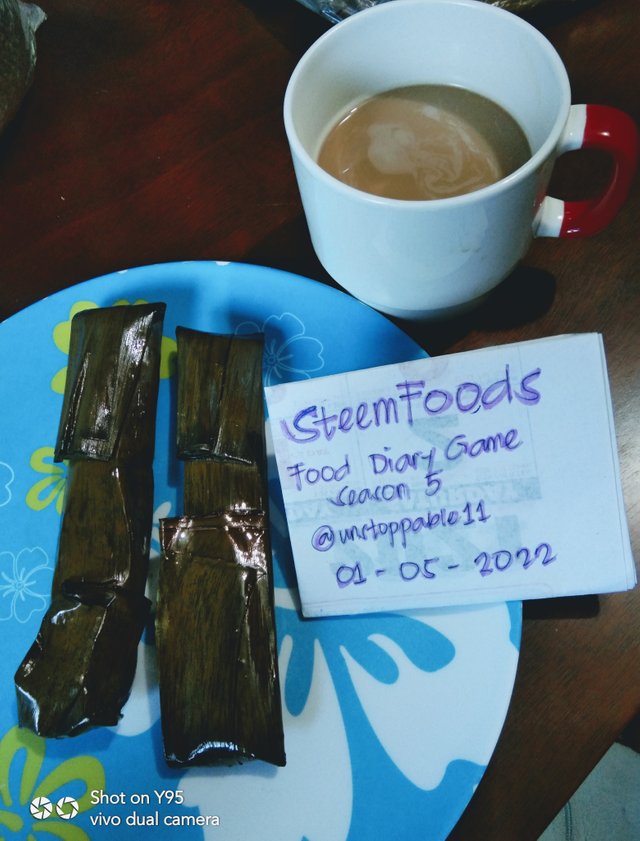 SteemFoods
Food Diary Game
Season 5
@unstoppable11
01-05-2022
Shot on Y95
vivo dual camera